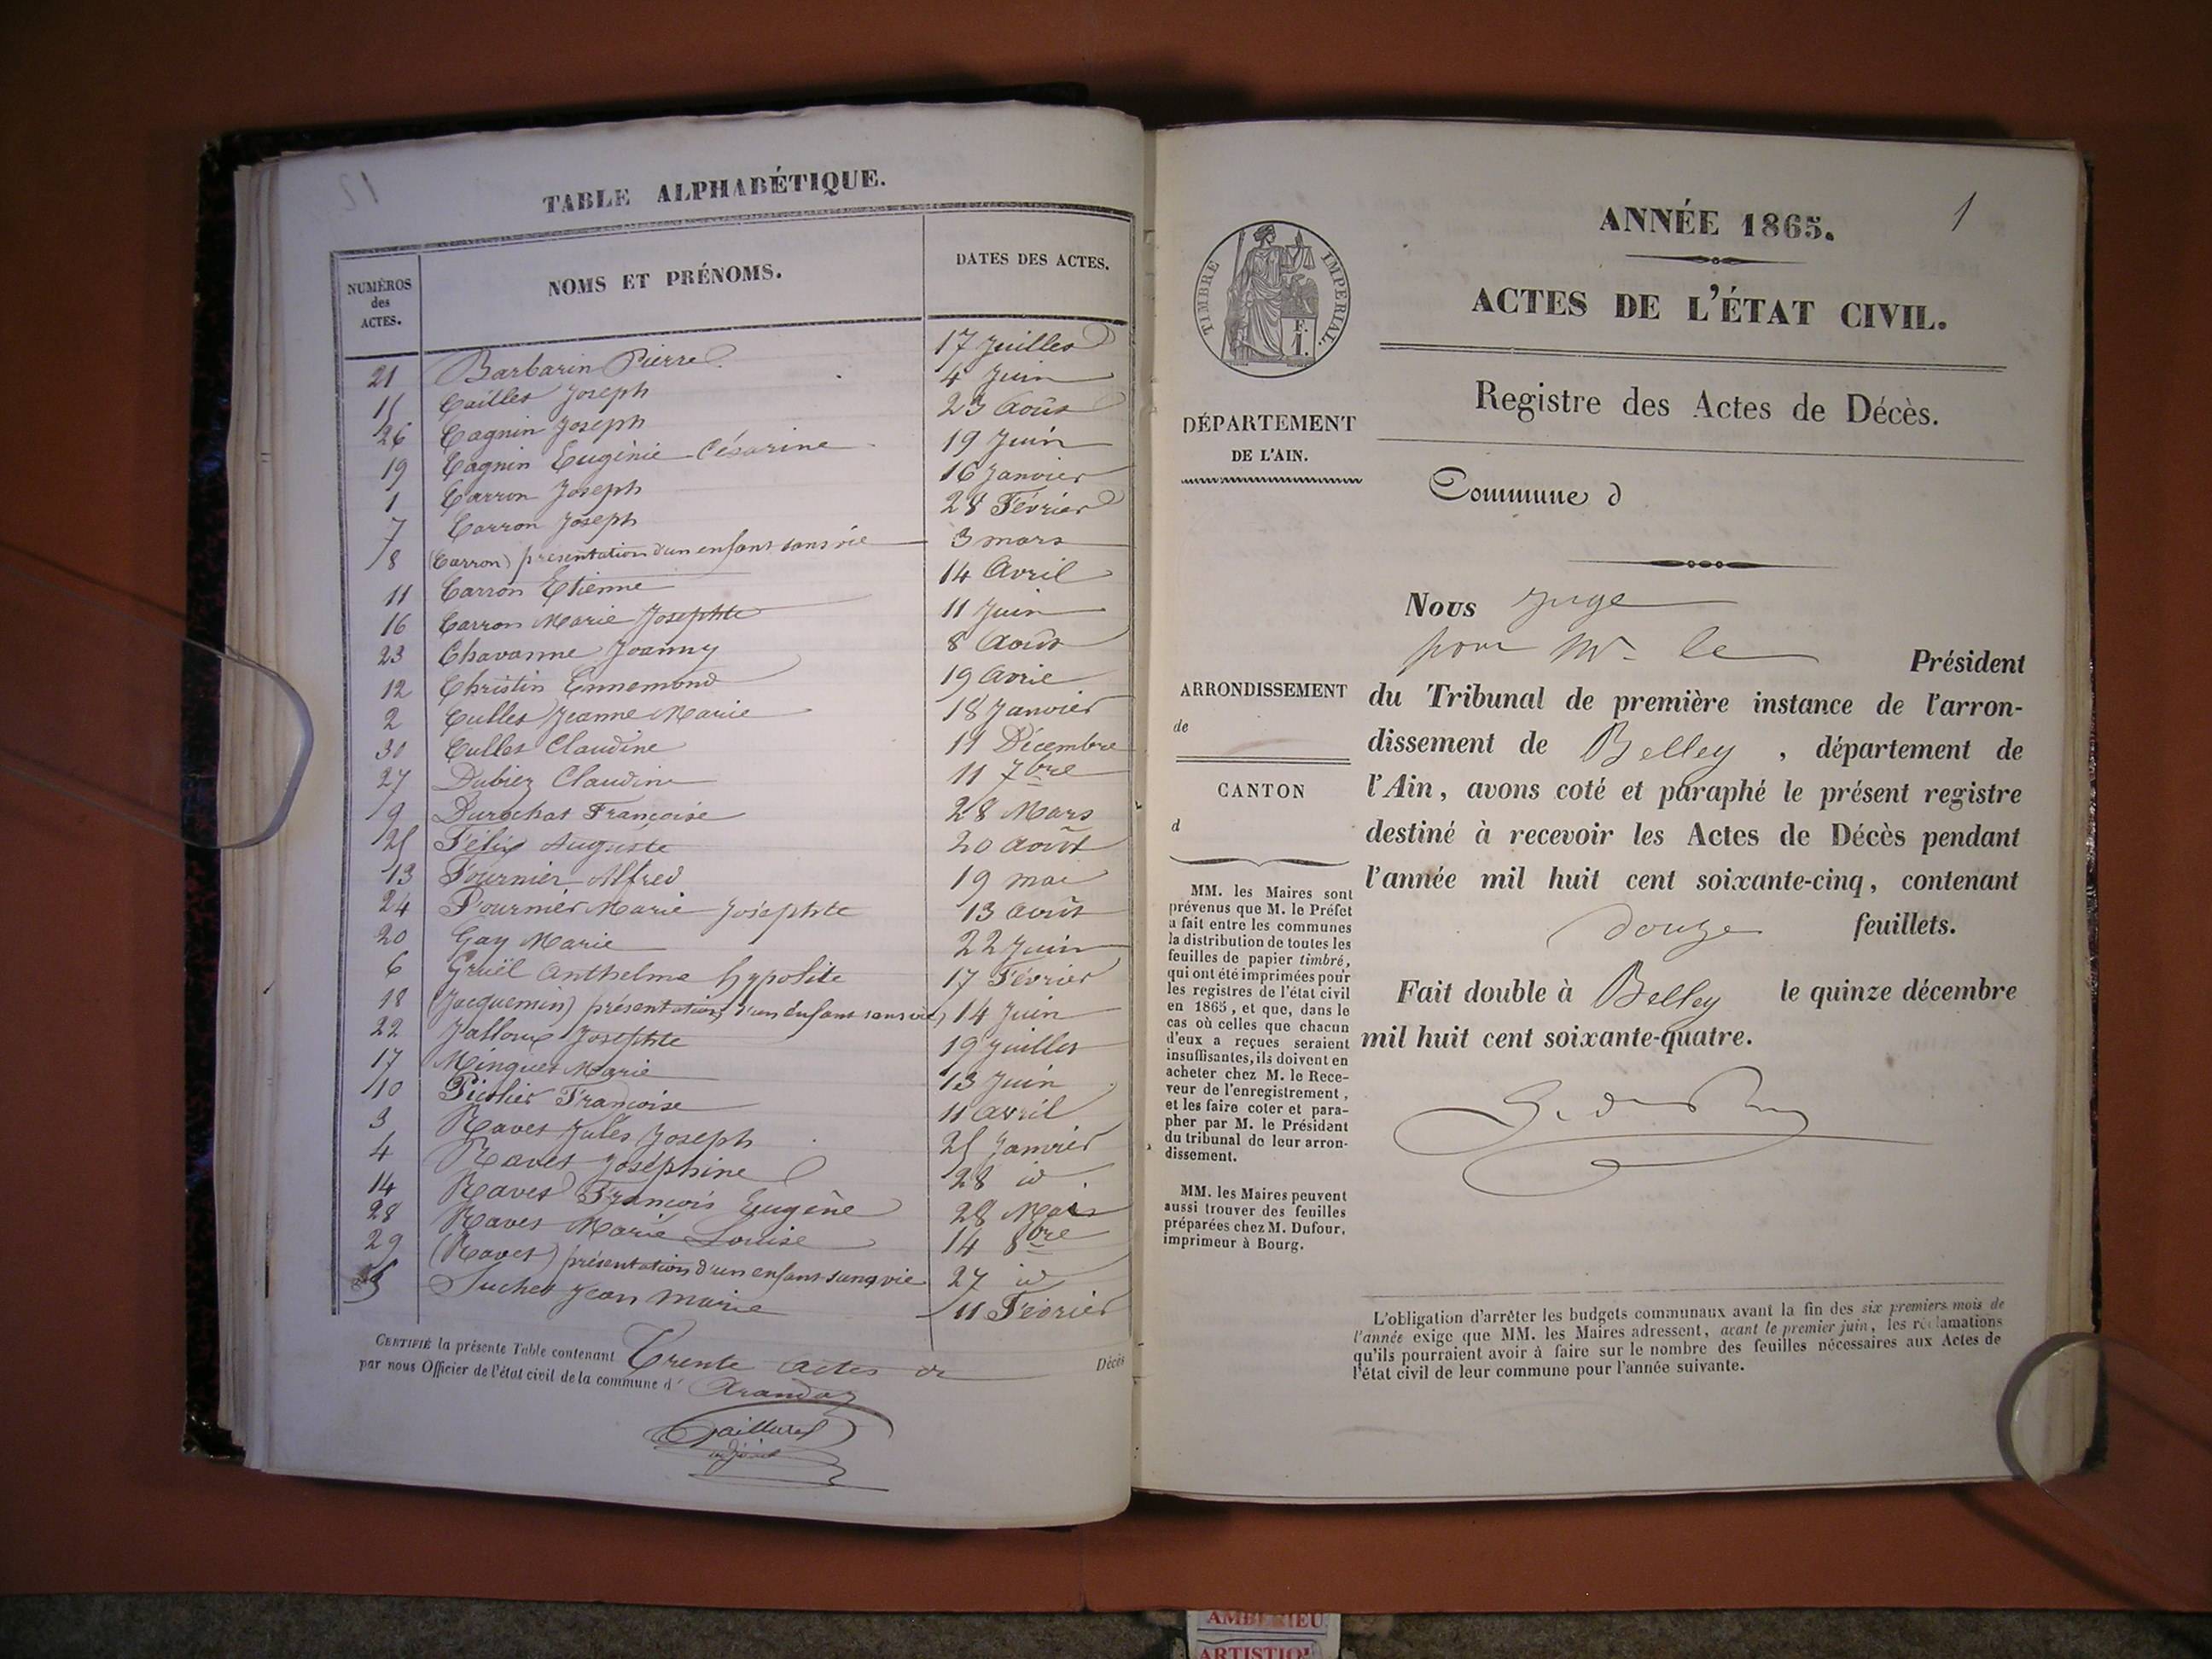 TABLE ALPHABÉTIQUE.
NUMÉROS des ACTES. NOMS ET PRÉNOMS. DATES DES ACTES.
21 Barbarin Pierre 17 Juillet
15 Caillet Joseph 4 Juin
26 Cagnin Joseph 23 Août
19 Cagnin Eugénie Césarine 19 Juin
1 Carron Joseph 16 Janvier
7 Carron Joseph 28 Février
8 (Carron) présentation d'un enfant sans vie 3 mars
11 Carron Etienne 14 Avril
16 Carron Marie Josephte 11 Juin
23 Chavanne Joanny 8 Août
12 Christin Ennemond 19 Avril
2 Cullet Jeanne Marie 18 Janvier
30 Cullet Claudine 11 Décembre
27 Dubiez Claudine 11 7bre
9 Durochat Françoise 28 Mars
25 Félix Auguste 20 Août
13 Fournier Alfred 19 mai
24 Fournier Marie Josephte 13 Août
20 Gay Marie 22 Juin
6 Gruël Anthelme hypolite 17 Février
18 (Jacquemin) présentation d'un enfant sans vie 14 Juin
22 Josephte 19 Juillet
17 Minguet Marie 13 Juin
10 Françoise 11 Avril
3 Ravet Jules Joseph 25 Janvier
4 Ravet Joséphine 28 id
14 Ravet François Eugène 28 Mai
28 Ravet Marie Louise 14 8bre
29 (Ravet) présentation d'un enfant sans vie 27 id
5 Suchet Jean Marie 11 Février
CERTIFIÉ la présente Table contenant Trente actes de Décès
par nous Officier de l'état civil de la commune d' Arandas
1
ANNÉE 1865.
ACTES DE L'ÉTAT CIVIL.
Registre des Actes de Décès.
TIMBRE IMPERIAL.
F.
I.
DÉPARTEMENT
DE L'AIN.
Commune d
ARRONDISSEMENT
de
CANTON
d
Nous Juge
pour Mr le Président
du Tribunal de première instance de l'arron-
dissement de Belley , département de
l'Ain, avons coté et paraphé le présent registre
destiné à recevoir les Actes de Décès pendant
l'année mil huit cent soixante-cinq, contenant
douze feuillets.
Fait double à Belley le quinze décembre
mil huit cent soixante-quatre.
MM. les Maires sont
prévenus que M. le Préfet
a fait entre les communes
la distribution de toutes les
feuilles de papier timbré,
qui ont été imprimées pour
les registres de l'état civil
en 1865, et que, dans le
cas où celles que chacun
d'eux a reçues seraient
insuffisantes, ils doivent en
acheter chez M. le Rece-
veur de l'enregistrement,
et les faire coter et para-
pher par M. le Président
du tribunal de leur arron-
dissement.
MM. les Maires peuvent
aussi trouver des feuilles
préparées chez M. Dufour,
imprimeur à Bourg.
L'obligation d'arrêter les budgets communaux avant la fin des six premiers mois de
l'année exige que MM. les Maires adressent, avant le premier juin, les réclamations
qu'ils pourraient avoir à faire sur le nombre des feuilles nécessaires aux Actes de
l'état civil de leur commune pour l'année suivante.